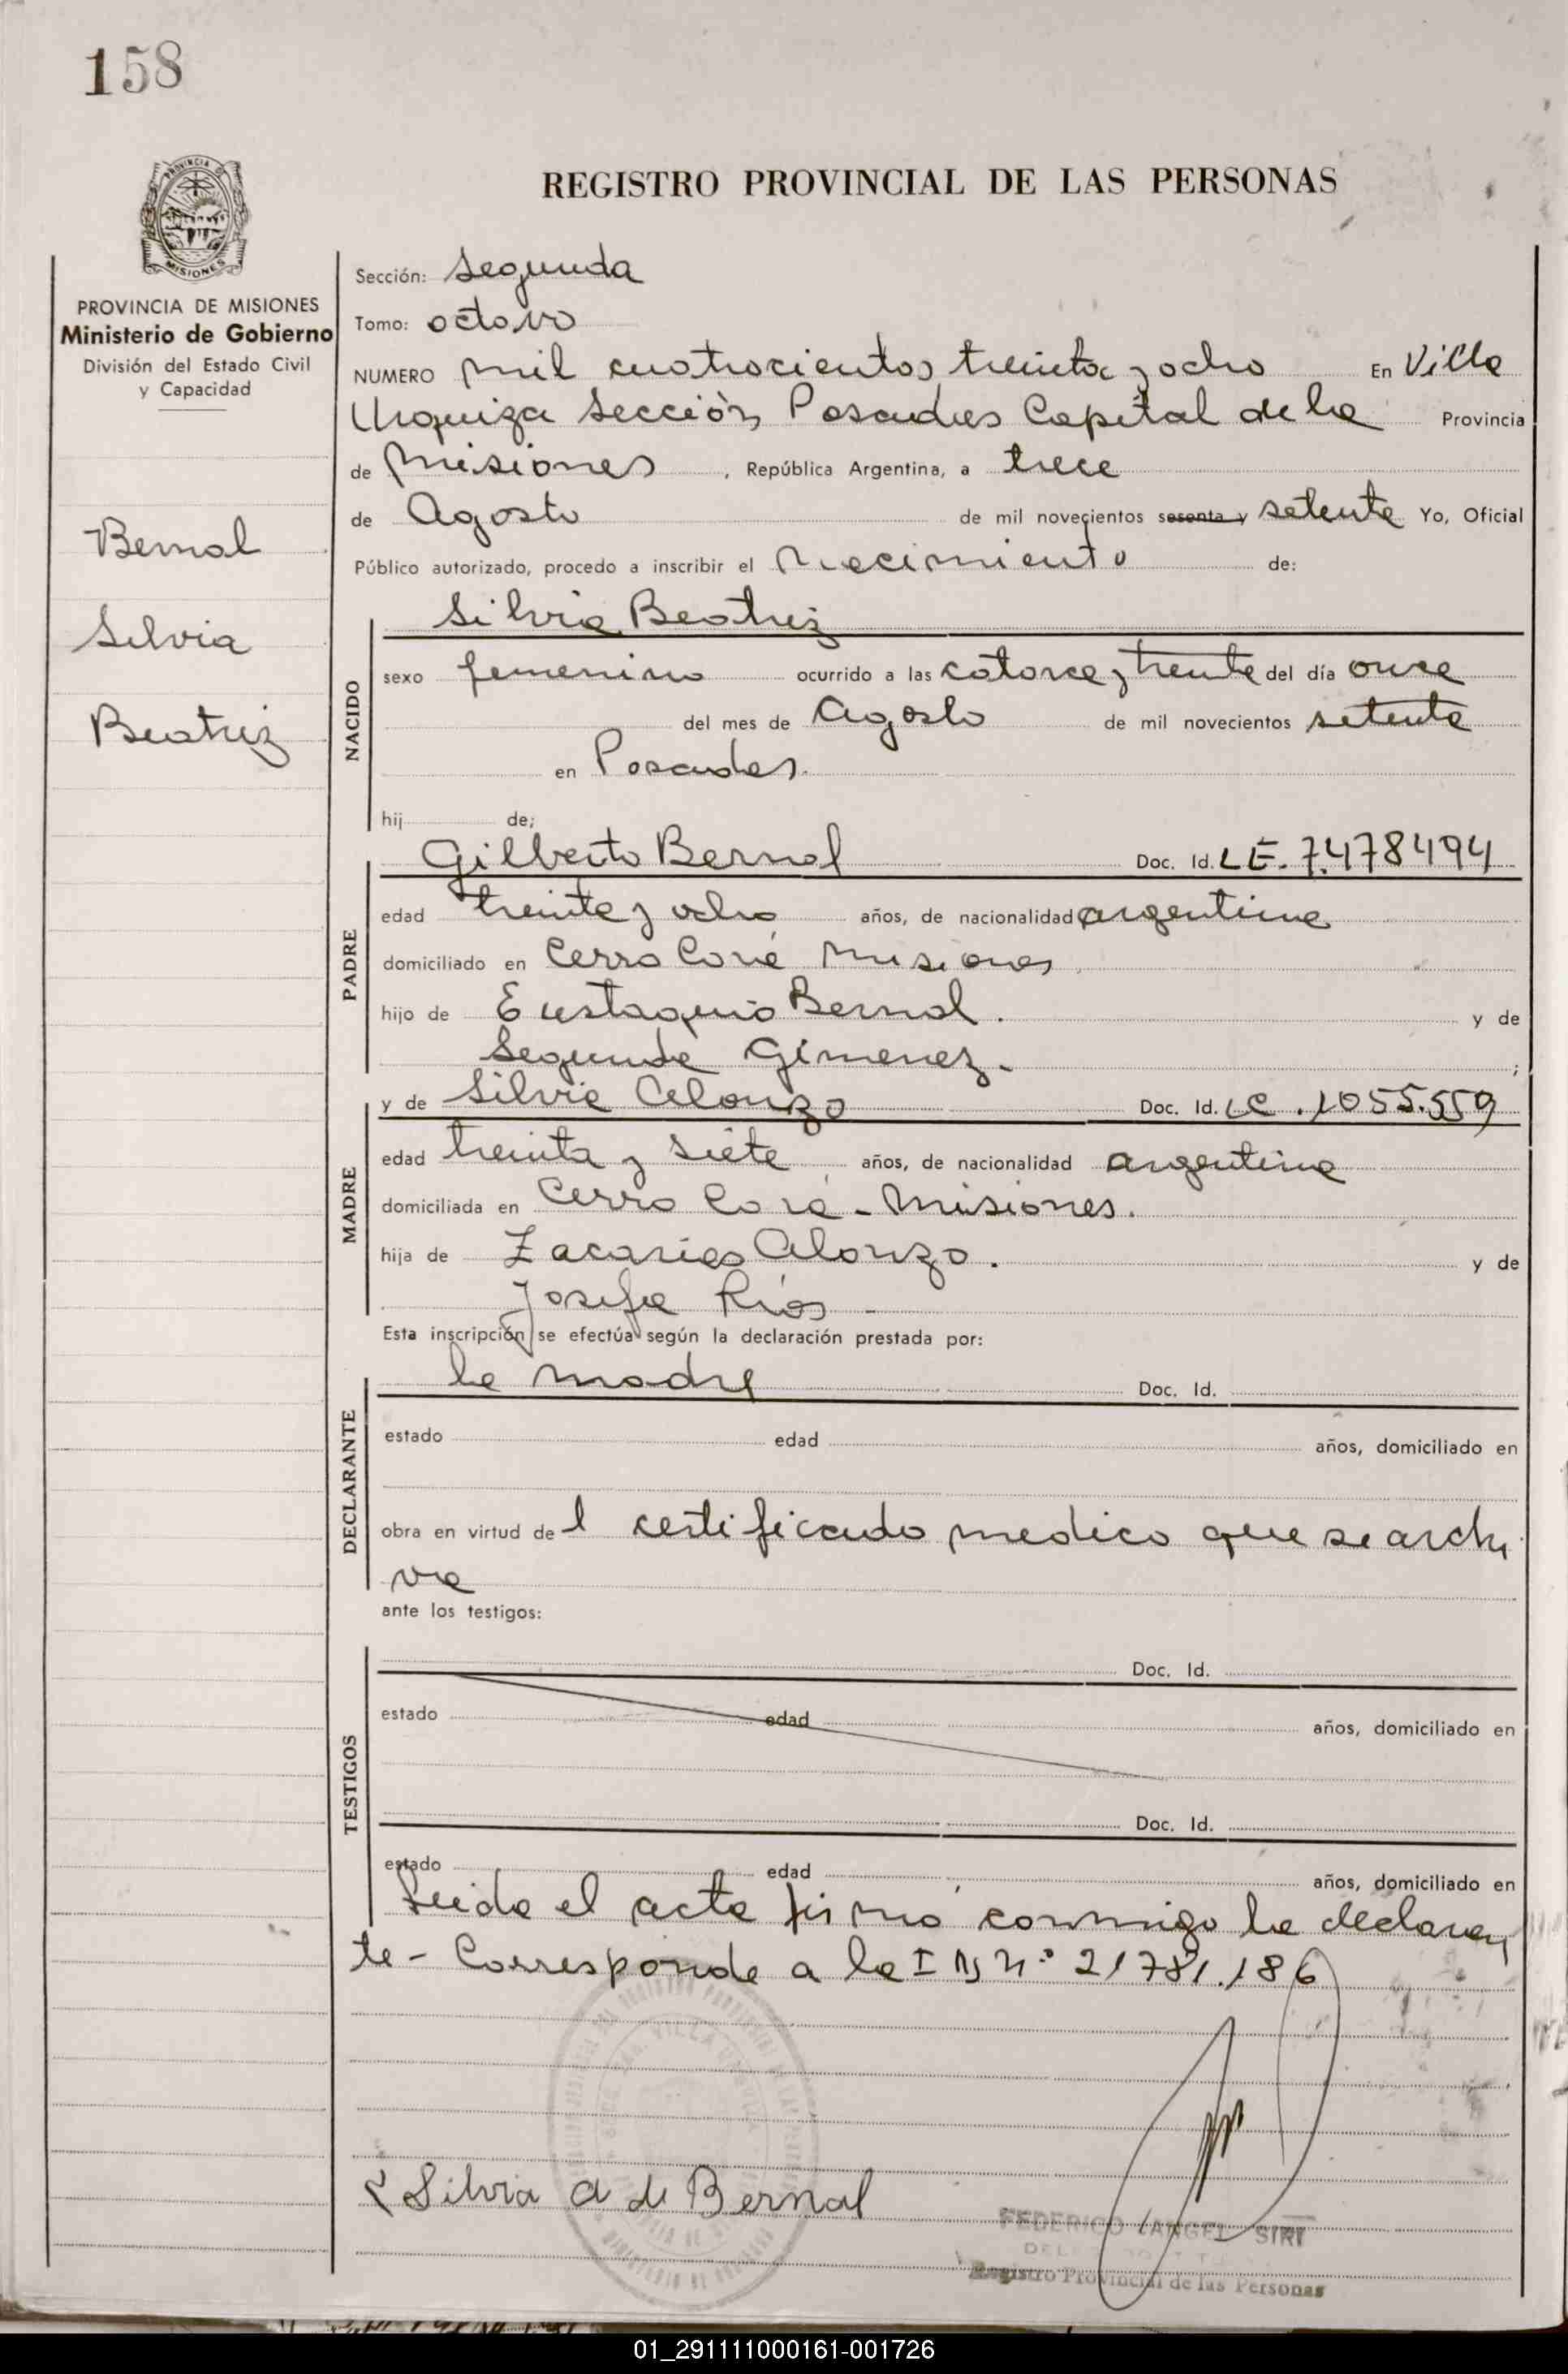 158
PROVINCIA
MISIONES
PROVINCIA DE MISIONES
Ministerio de Gobierno
División del Estado Civil
y Capacidad
Bernal
Silvia
Beatriz
REGISTRO PROVINCIAL DE LAS PERSONAS
Sección: Segunda
Tomo: octavo
NUMERO mil cuatrocientos treinta y ocho En Villa
Urquiza Sección Posadas Capital de la Provincia
de Misiones, República Argentina, a trece
de Agosto de mil novecientos sesenta y setenta Yo, Oficial
Público autorizado, procedo a inscribir el Nacimiento de:
NACIDO
Silvia Beatriz
sexo femenino ocurrido a las catorce y treinta del día once
del mes de Agosto de mil novecientos setenta
en Posadas.
hij de;
PADRE
Gilberto Bernal Doc. Id. LE. 7.478494
edad treinta y ocho años, de nacionalidad argentina
domiciliado en Cerro Corá Misiones
hijo de Eustaquio Bernal. y de
Segunda Gimenez. ;
MADRE
y de Silvia Alonzo Doc. Id. LC. 1055.559
edad treinta y siete años, de nacionalidad argentina
domiciliada en Cerro Corá - Misiones.
hija de Zacarias Alonzo. y de
Josefa Ríos -
Esta inscripción se efectúa según la declaración prestada por:
DECLARANTE
la madre Doc. Id.
estado edad años, domiciliado en
obra en virtud del certificado medico que se archi
va
ante los testigos:
TESTIGOS
Doc. Id.
estado edad años, domiciliado en
Doc. Id.
estado edad años, domiciliado en
Leida el acta firmó conmigo la declaran
te - Corresponde a la I N nº 21781.186
VILLA URQUIZA
Silvia A de Bernal
FEDERICO ANGEL SIRI
Registro Provincial de las Personas
01_291111000161-001726